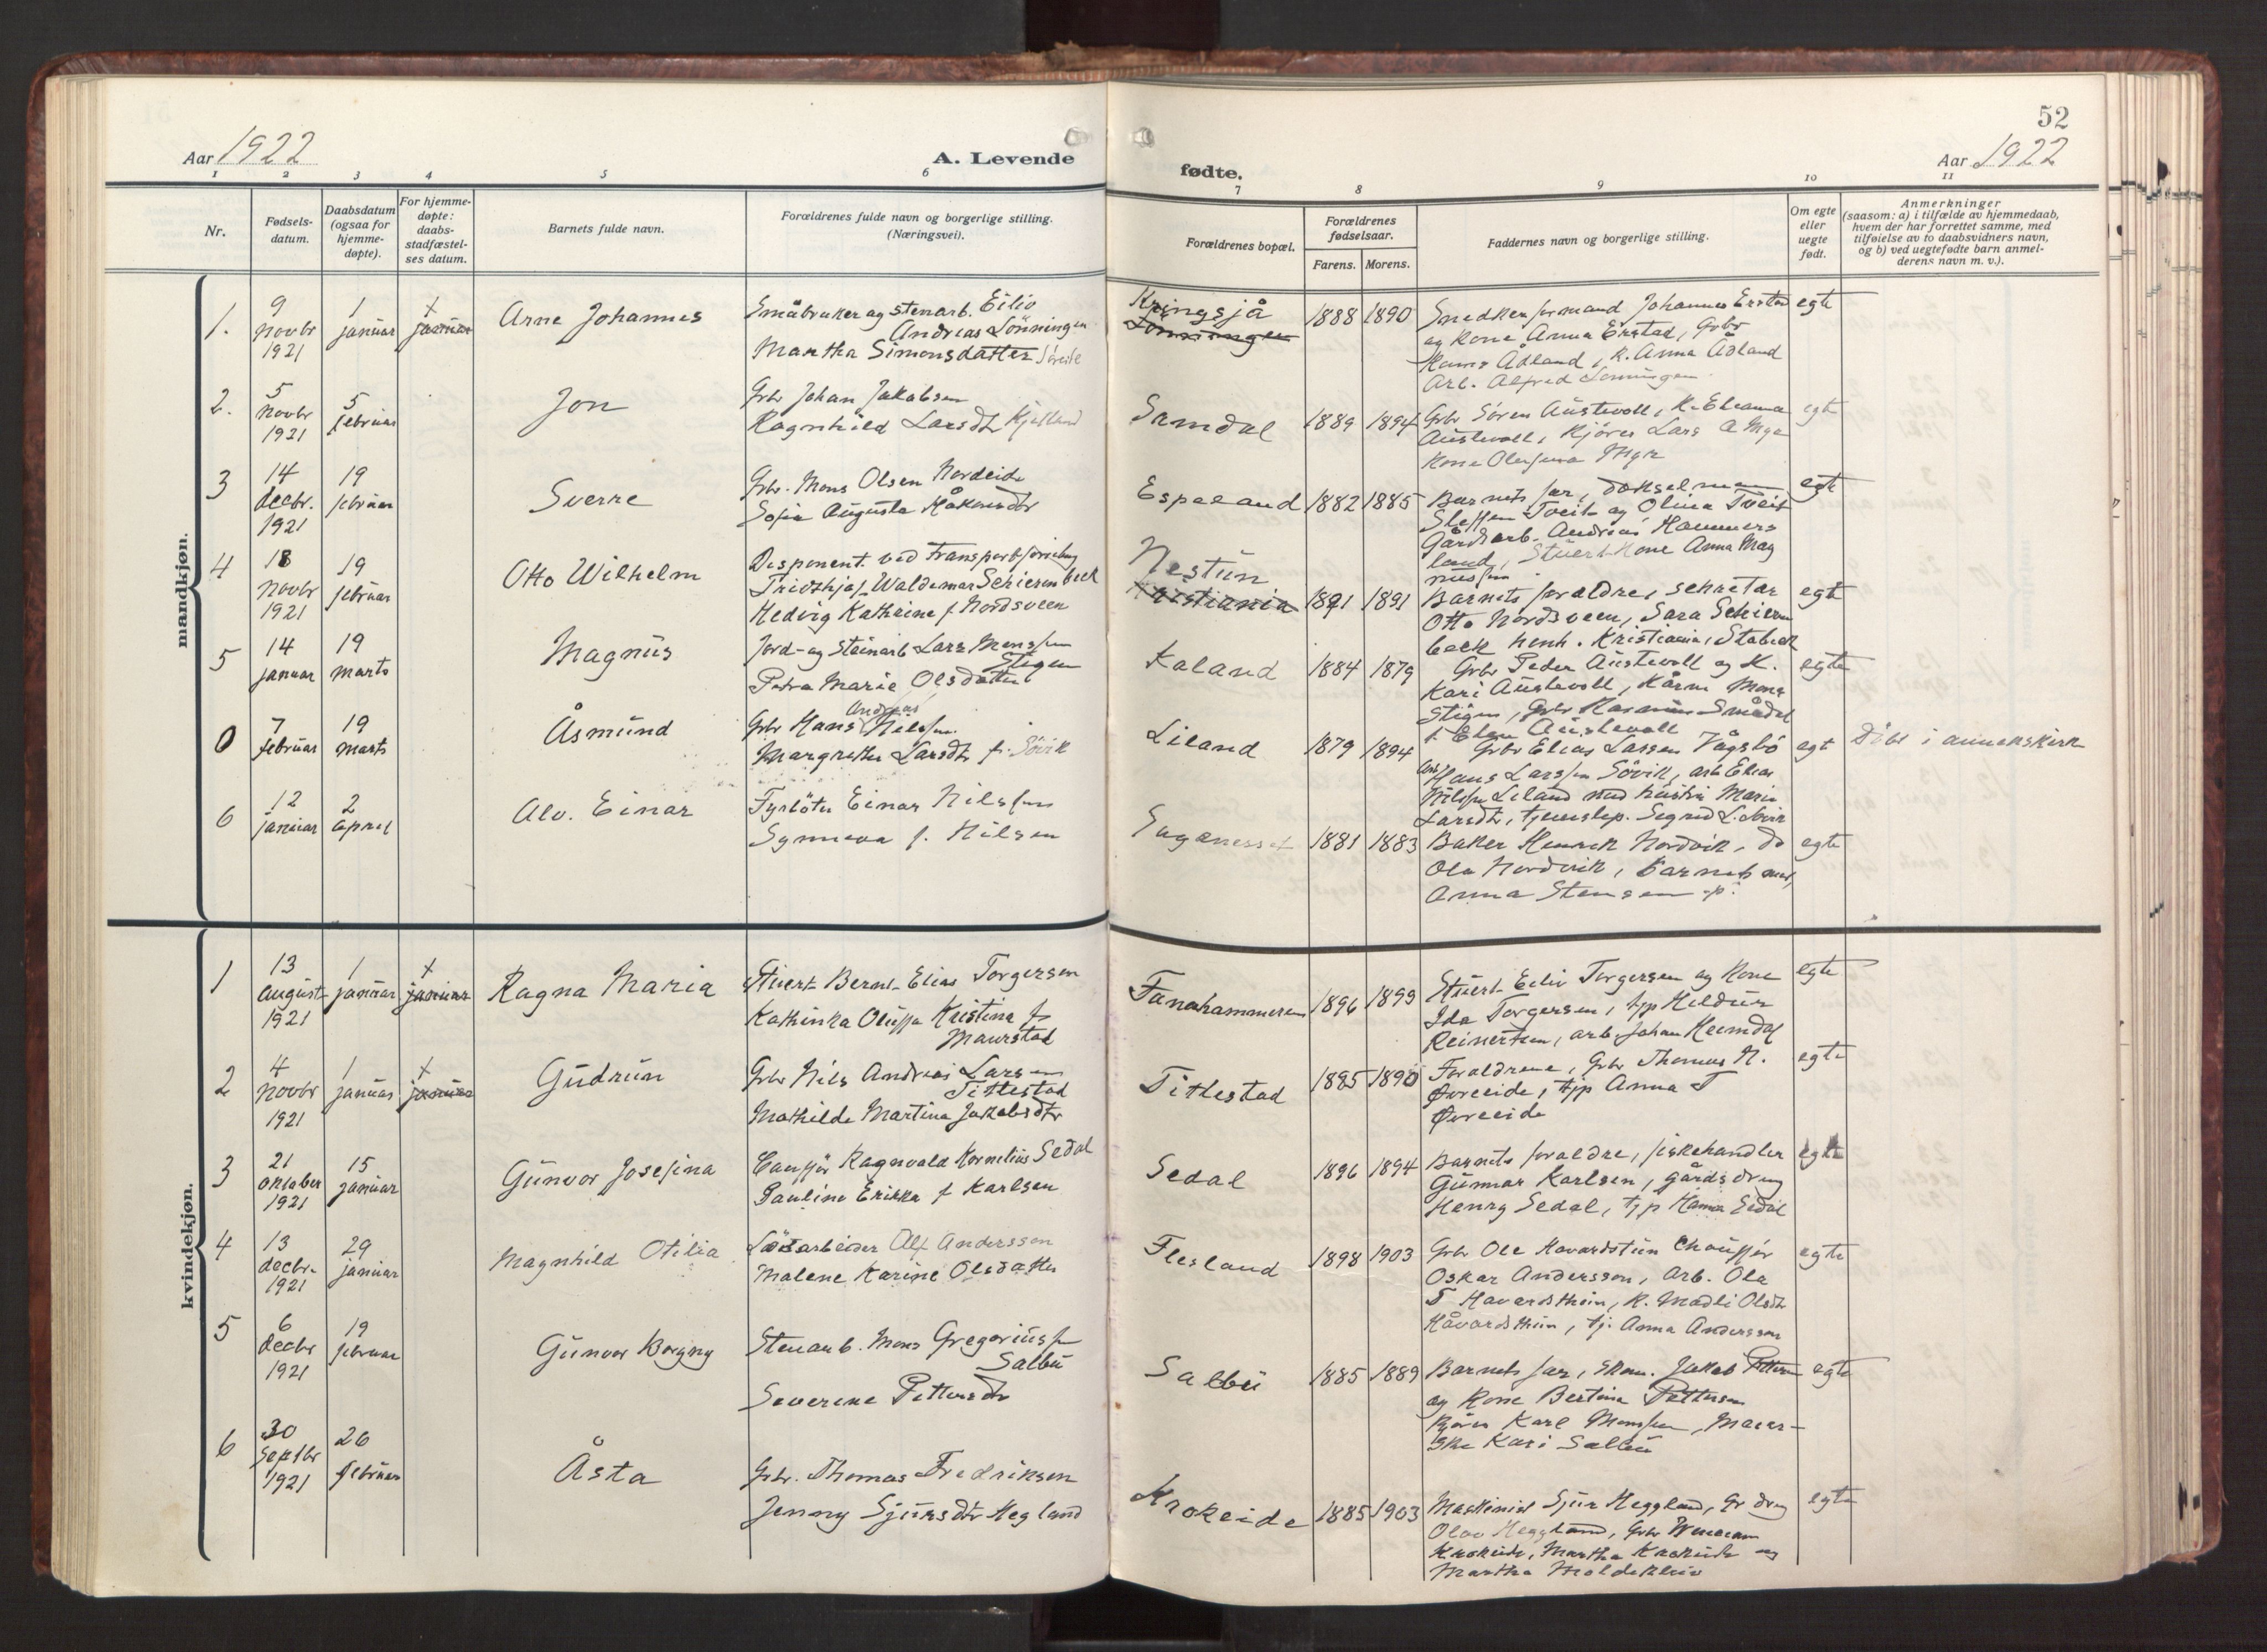 52
Aar 1922
A. Levende
fødte.
Aar 1922
1 2 3 4 5 6 7 8 9 10 11
Nr.
Fødsels-
datum.
Daabsdatum
(ogsaa for
hjemme-
døpte).
For hjemme-
døpte:
daabs-
stadfæstel-
ses datum.
Barnets fulde navn.
Forældrenes fulde navn og borgerlige stilling.
(Næringsvei).
Forældrenes bopæl.
Forældrenes
fødselsaar.
Farens. Morens.
Faddernes navn og borgerlige stilling.
Om egte
eller
uegte
født.
Anmerkninger
(saasom: a) i tilfælde av hjemmedaab,
hvem der har forrettet samme, med
tilføielse av to daabsvidners navn,
og b) ved uegtefødte barn anmel-
derens navn m. v.).
mandkjøn.
1.
9
novbr
1921
1
januar
+
januar
Arne Johannes
Småbruker og stenarb. Eiliv
Andreas Lönningen
Martha Simonsdatter
Kringsjå
Lönningen
1888 1890
Snedkerformand Johannes Erstad
og kone Anna Erstad, Gbr
Hans Ådland, K. Anna Ådland
Arb. Alfred Lönningen
egte
2.
5
novbr
1921
5
februar
Jon
Gbr Johan Jakobsen
Ragnhild Larsdtr
Samdal
1889 1894
Gbr Sören Austevoll, K.
Austevoll, Kjörer Lars
Kone
egte
3
14
decbr.
1921
19
februar
Sverre
Gbr. Mons Olsen Nordeide
Sofie Augusta Håkonsdtr
Espeland
1882 1885
Barnets far,
Steffen Tveit og Olina Tveit
Gårdsarb. Andreas Hammers
land, Stuert Kone Anna Mag
nussen
egte
4
18
novbr
1921
19
februar
Otto Wilhelm
Disponent ved Transportforsikring
Waldemar Schierenbeck
Hedvig Kathrine f. Nordsveen
Nestun
Kristiania
1891 1891
Barnets forældre, sekretær
Otto Nordsveen, Sara Schieren
beck henh. Kristiania, Stabæk
egte
5
14
januar
19
marts
Magnus
Jord- og Steinarb Lars Monssen
Stigen
Petra Marie Olsdatter
Kaland
1884 1879
Gbr Peder Austevoll og K.
Kari Austevoll, Mons
Stigen, Gbr Rasmus Smådal
f. Elen Austevoll
egte
0
7
februar
19
marts
Åsmund
Andreas
Gbr Hans Nilssen
Margrethe Larsdtr f. Sövik
Liland
1879 1894
Gbr Elias Lassen Vågsbö
Hans Larssen Sövik, arb Elias
Nilssen Liland med hustru Marie
Larsdtr, tjenestep. Sigrid L. Sövik
egt
Döbt i annekskirk
6
12
januar
2
april
Alv. Einar
Fyrböter Einar Nilssen
Synneva f. Nilsen
1881 1883
Baker Henrik Nordvik, do
Ola Nordvik, Barnets mor,
Anna Stensen
egte
kvindekjøn.
1
13
august
1921
1
januar
+
januar
Ragna Maria
Stuert Bernt Elias Torgersen
Kathinka Oluffa Kristine f
Maurstad
Fanahammeren
1896 1899
Stuert Eiliv Torgersen og Kone
Ida Torgersen, tjp Hildur
Reinertsen, arb. Johan Heimdal
egte
2
4
novbr
1921
1
januar
+
januar
Gudrun
Gbr Nils Andreas Larsen
Titlestad
Mathilde Martina Jakobsdtr
Titlestad
1895 1890
Forældrene, Gbr Thomas N.
Övreeide, tjp Anna T
Övreeide
egte
3
21
oktober
1921
15
januar
Gunvor Josefina
Cauffør Ragnvald Kornelius Sedal
Pauline Erikka f Karlsen
Sedal
1896 1894
Barnets forældre, fiskehandler
Gunnar Karlsen, gårdsdreng
Henry Sedal, tjp Hanna Sedal
egte
4
13
decbr.
1921
29
januar
Magnhild Otilia
Lösarbeider Alf Anderssen
Malene Karine Olsdatter
Flesland
1898 1903
Gbr Ole Havardstun Chauffør
Oskar Anderssen, Arb. Ola
T Havardsthun, K. Madli Olsdtr
Håvardsthun, tj. Anna Anderssen
egte
5
6
decbr
1921
19
februar
Gunvor Borgny
Stenarb. Mons Gregoriussen
Salbu
Severine Pettersdtr
Salbu
1885 1889
Barnets far, Skom. Jakob Pettersen
og Kone Bertina Pettersen
Karl Monssen, Meier-
ske Kari Salbu
egte
6
30
septbr
1921
26
februar
Åsta
Gbr. Thomas Fredriksen
Jenny Sjursdtr Hegland
Krokeide
1885 1903
Maskinist Sjur Heggland, Gr dreng
Olav Heggland, Gbr
Krokeide, Martha Krokeide og
Martha Moldekleiv
egte